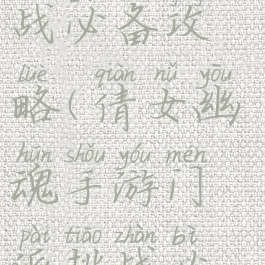 战必备攻
lüè qiàn nǚ yōu
略(倩女幽
hún shǒu yóu mén
魂手游门
pài tiāo zhàn bì
派挑战必